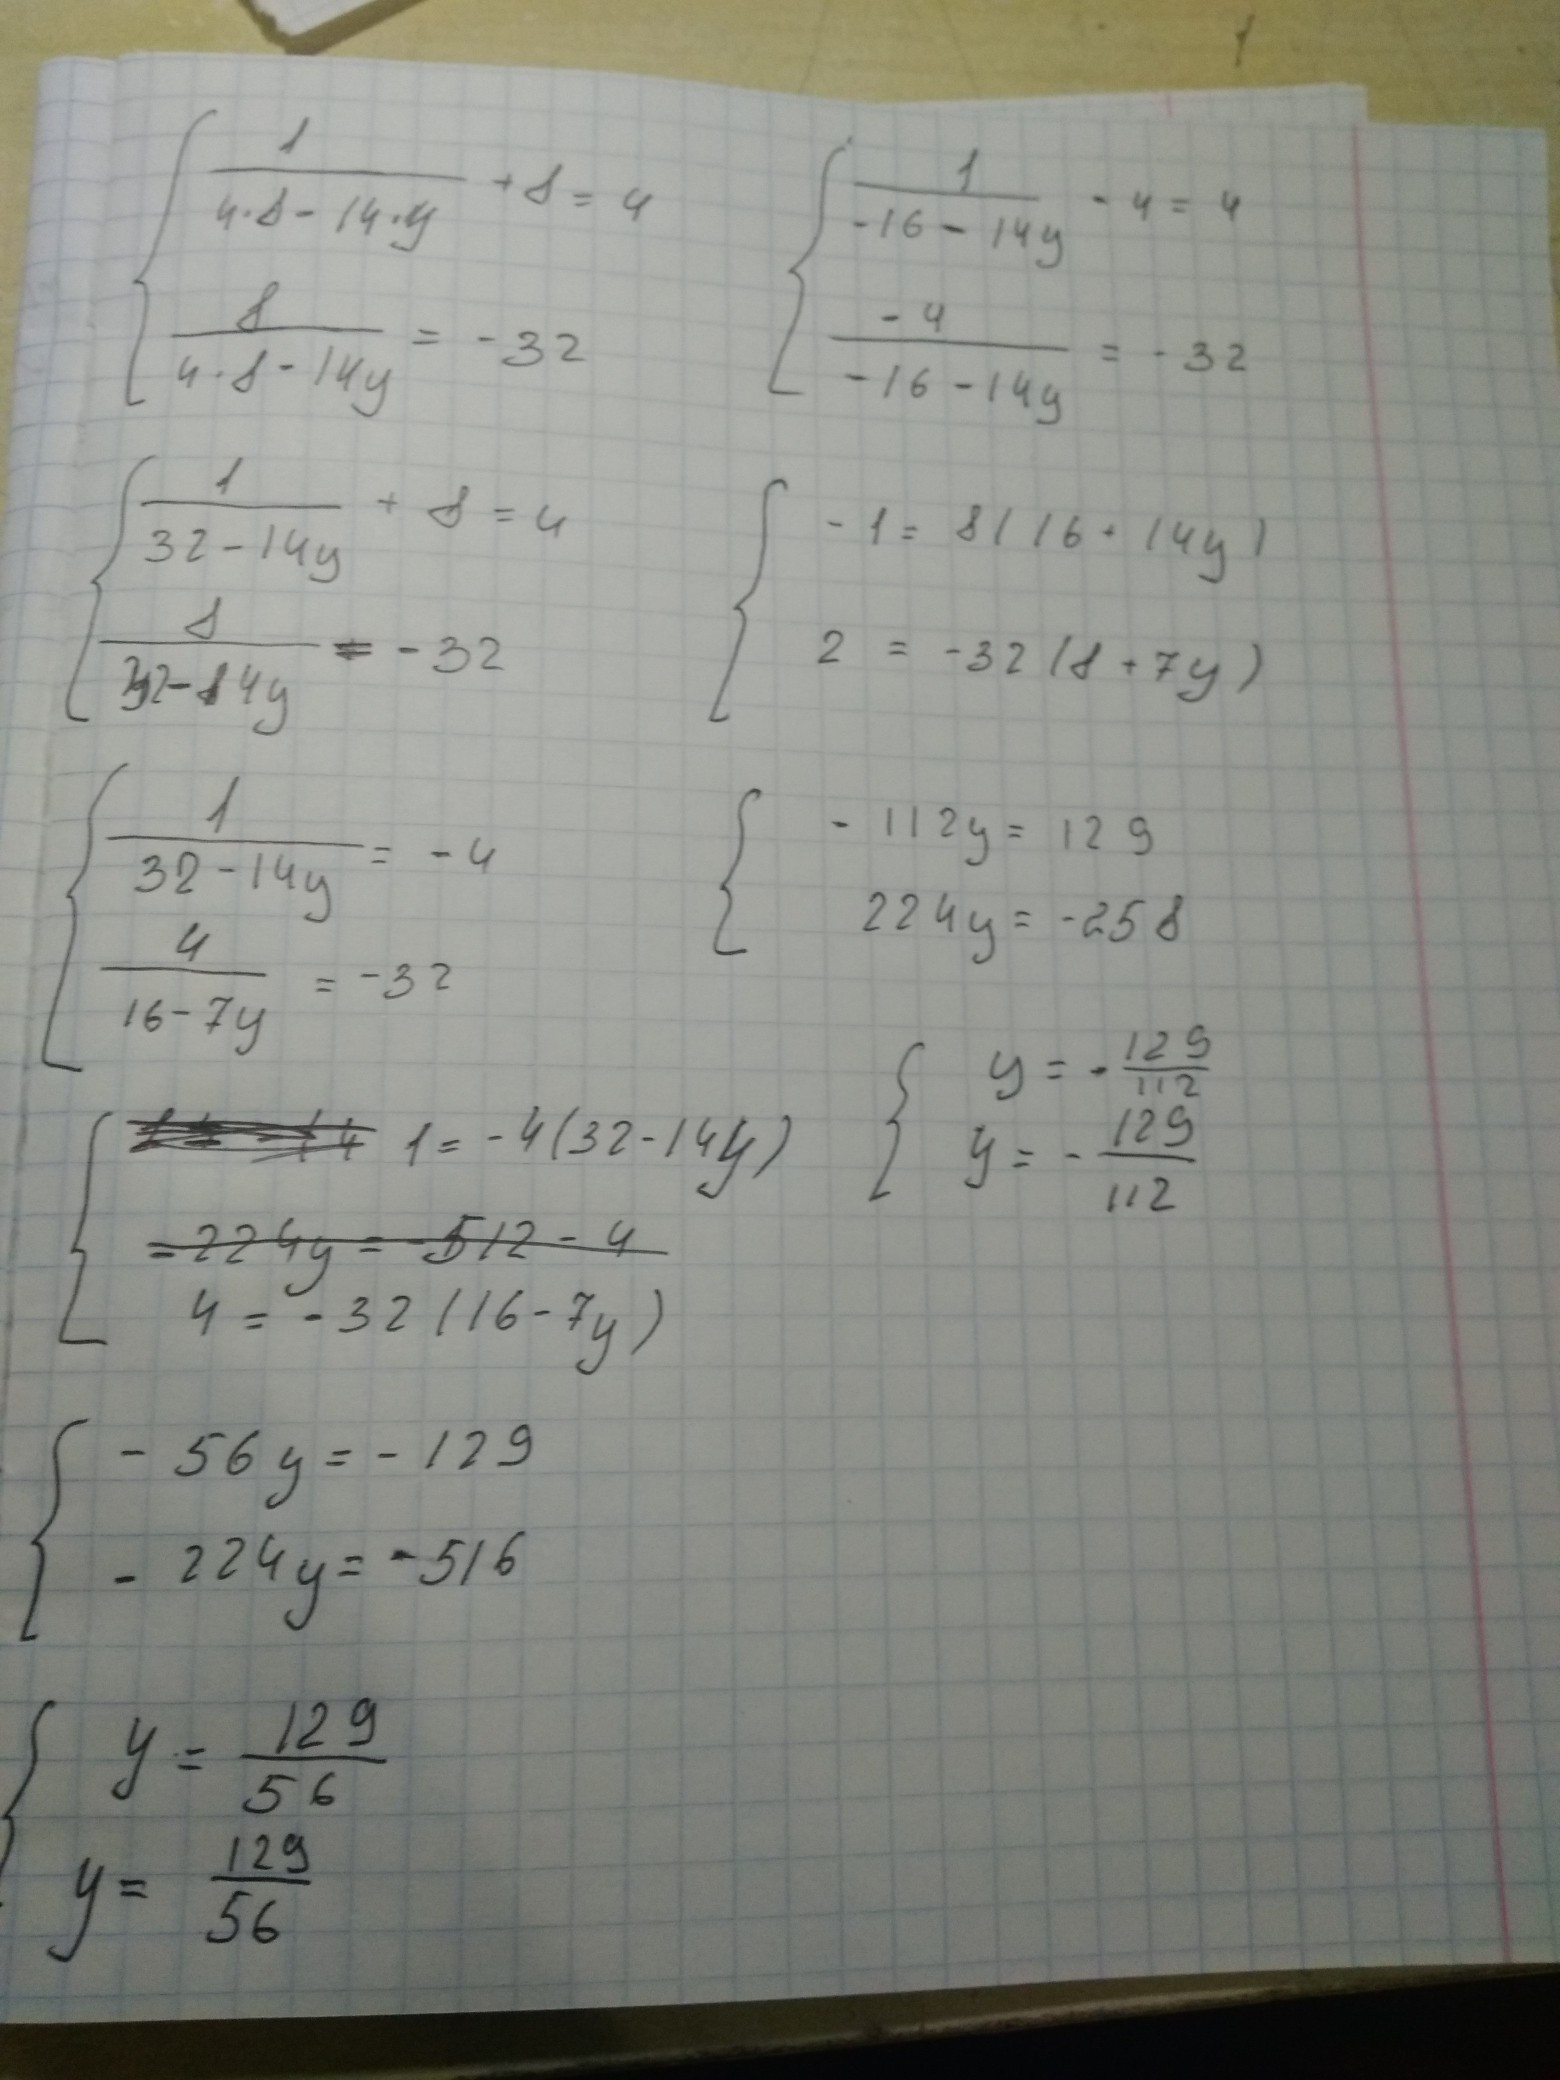 1/(4·8-14·y) + 8 = 4
8/(4·8-14y) = -32
1/(32-14y) + 8 = 4
8/(32-14y) = -32
1/(32-14y) = -4
4/(16-7y) = -32
1 = -4(32-14y)
=224y = -512 - 4
4 = -32(16-7y)
-56y = -129
-224y = -516
y = 129/56
y = 129/56
1/(-16-14y) - 4 = 4
-4/(-16-14y) = -32
-1 = 8(16+14y)
2 = -32(8+7y)
-112y = 129
224y = -258
y = -129/112
y = -129/112